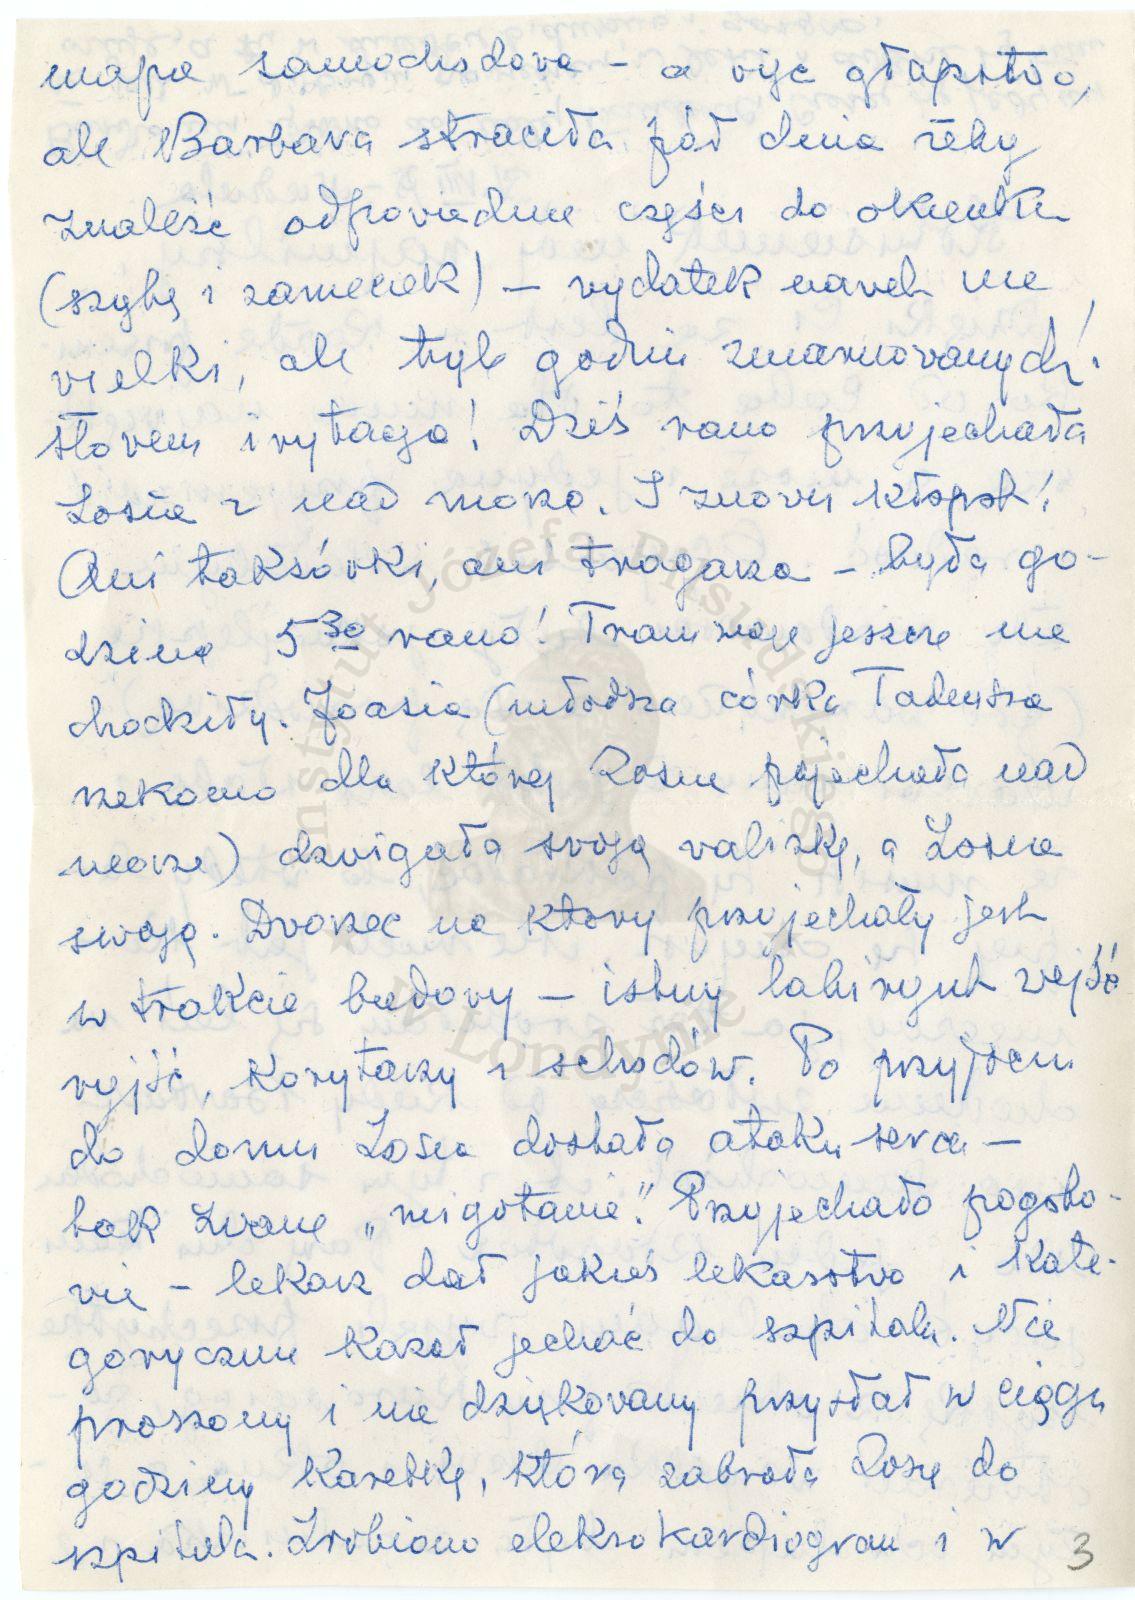 mapa samochodowa – a więc głupstwo,
ale Barbara straciła pół dnia żeby
znaleźć odpowiednie części do okienka
(szybę i zameczek) – wydatek nawet nie
wielki, ale tyle godzin zmarnowanych!
Słowem irytacja! Dziś rano przyjechała
Zosia z nad morza. I znowu kłopot!
Ani taksówki, ani tragarza – była go-
dzina 5 30 rano! Tramwaje jeszcze nie
chodziły. Joasia (młodsza córka Tadeusza
rzekomo dla której Zosia pojechała nad
morze) dźwigała swoją walizkę, a Zosia
swoją. Dworzec na który przyjechały jest
w trakcie budowy – istny labirynt wejść
wyjść, korytarzy i schodów. Po przyjściu
do domu Zosia dostała ataku serca –
tak zwane „migotanie". Przyjechało pogoto-
wie – lekarz dał jakieś lekarstwo i kate-
gorycznie kazał jechać do szpitala. Nie
proszony i nie dziękowany przysłał w ciągu
godziny karetkę, która zabrała Zosię do
szpitala. Zrobiono elektrokardiogram i w
3
Instytut Józefa Piłsudskiego
w Londynie